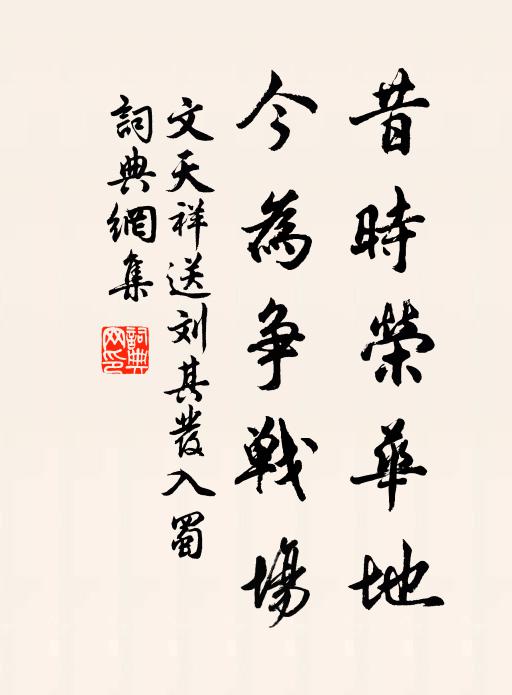 昔時榮華地
今為争戰場
文天祥送刘其發入蜀
詞典網集
詞典網印